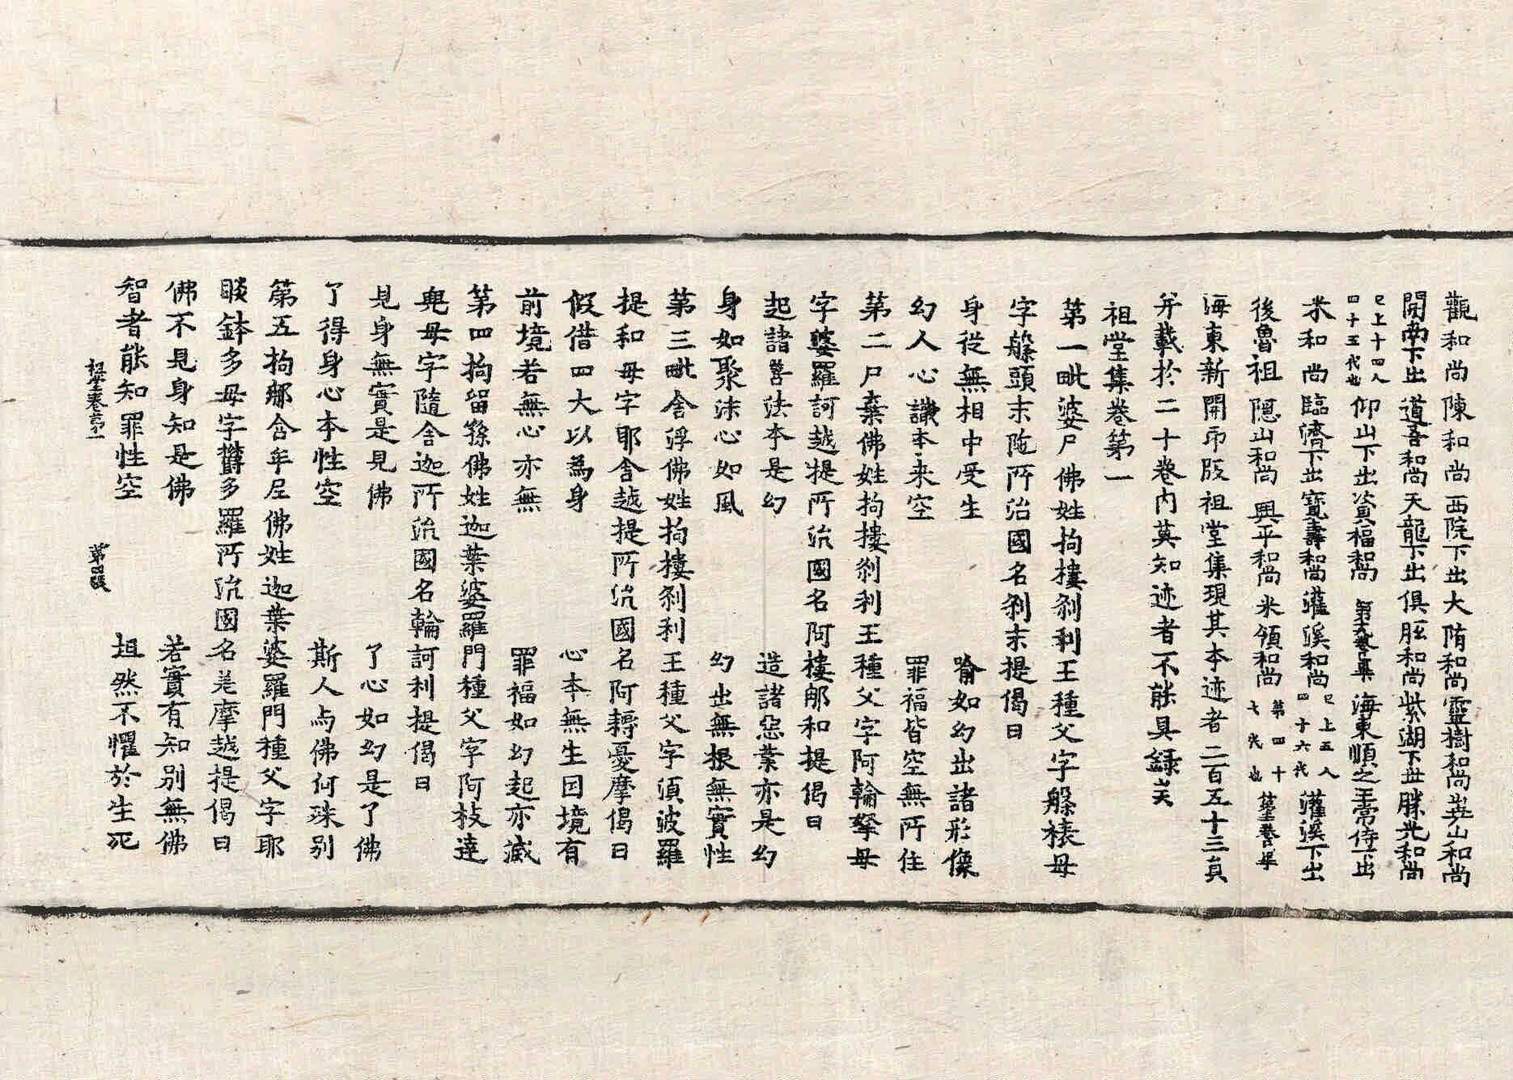 觀和尚陳和尚西院下出大隋和尚靈樹和尚㟧山和尚
關南下出道吾和尚天龍下出俱胝和尚紫湖下出勝光和尚
已上十四人
四十五代也
仰山下出資福和尚
第六卷畢
海東順之
常侍下出
米和尚臨濟下出寶壽和尚灌溪和尚
已上五人
四十六代
灌溪下出
後魯祖隱山和尚興平和尚米領和尚
第四十
七代也
海東新開印版祖堂集現其本迹者二百五十三員
并載於二十卷內莫知迹者不能具錄矣
祖堂集卷第一
第一毗婆尸佛姓拘樓剎利王種父字槃裱母
字槃頭末陁所治國名剎末提偈曰
身從無相中受生 喻如幻出諸形像
幻人心識本來空 罪福皆空無所住
第二尸棄佛姓拘樓剎利王種父字阿輪拏母
字婆羅訶越提所治國名阿樓那和提偈曰
起諸善法本是幻 造諸惡業亦是幻
身如聚沫心如風 幻出無根無實性
第三毗舍浮佛姓拘樓剎利王種父字須波羅
提和母字耶舍越提所治國名阿耨憂摩偈曰
假借四大以為身 心本無生因境有
前境若無心亦無 罪福如幻起亦滅
第四拘留孫佛姓迦葉婆羅門種父字阿枝達
兜母字隨舍迦所治國名輪訶利提偈曰
見身無實是見佛 了心如幻是了佛
了得身心本性空 斯人与佛何殊別
第五拘那含牟尼佛姓迦葉婆羅門種父字耶
睒鉢多母字欝多羅所治國名差摩越提偈曰
佛不見身知是佛 若實有知別無佛
智者能知罪性空 坦然不懼於生死
祖堂卷第一 第四張